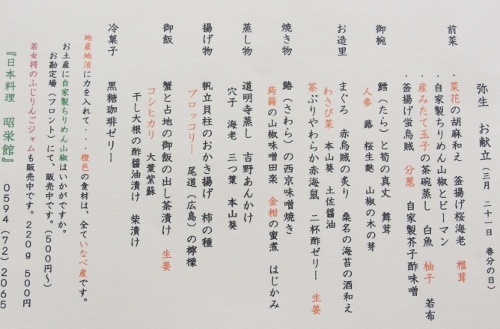 弥生　お献立（三月　二十一日　春分の日）
前菜　・菜花の胡麻和え　釜揚げ桜海老　椎茸
・自家製ちりめん山椒とピーマン
・産みたて玉子の茶碗蒸し　白魚　柚子　若布
・釜揚げ蛍烏賊　分葱　自家製芥子酢味噌
御椀　鱈（たら）と筍の真丈　舞茸
人参　蕗　桜生麩　山椒の木の芽
お造里　まぐろ　赤烏賊の炙り　桑名の海苔の酒和え
わさび菜　本山葵　土佐醤油
茶ぶりやわらか赤海鼠　二杯酢ゼリー　生姜
焼き物　鰆（さわら）の西京味噌焼き
蒟蒻の山椒味噌田楽　金柑の蜜煮　はじかみ
蒸し物　道明寺蒸し　吉野あんかけ
穴子　海老　三つ葉　本山葵
揚げ物　帆立貝柱のおかき揚げ　柿の種
ブロッコリー　尾道（広島）の檸檬
御飯　蟹と占地の御飯の出し茶漬け　生姜
コシヒカリ　大葉紫蘇
干し大根の酢醤油漬け　柴漬け
冷菓子　黒糖珈琲ゼリー
地産地消に力を入れて・・・橙色の食材は、全ていなべ産です。
お土産に自家製ちりめん山椒はいかがですか。
お勘定場（フロント）にて、販売中です。（５００円～）
若女将のふじりんごジャムも販売中です。２２０ｇ　５００円
『日本料理　昭栄館』　０５９４（７２）２０６５